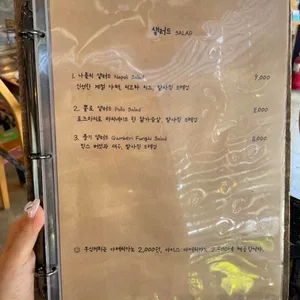 샐러드 SALAD
1. 나폴리 샐러드 Napoli Salad 9,000
신선한 제철 야채, 리코타 치즈, 발사믹 드레싱
2. 뽈로 샐러드 Pollo Salad 8,000
로즈마리로 마리네이드 한 닭가슴살, 발사믹 드레싱
3. 풍기 샐러드 Gamberi Funghi Salad 8,000
믹스 버섯과 새우, 발사믹 드레싱
2,000원, 아이스 아메리카노는 2,500원